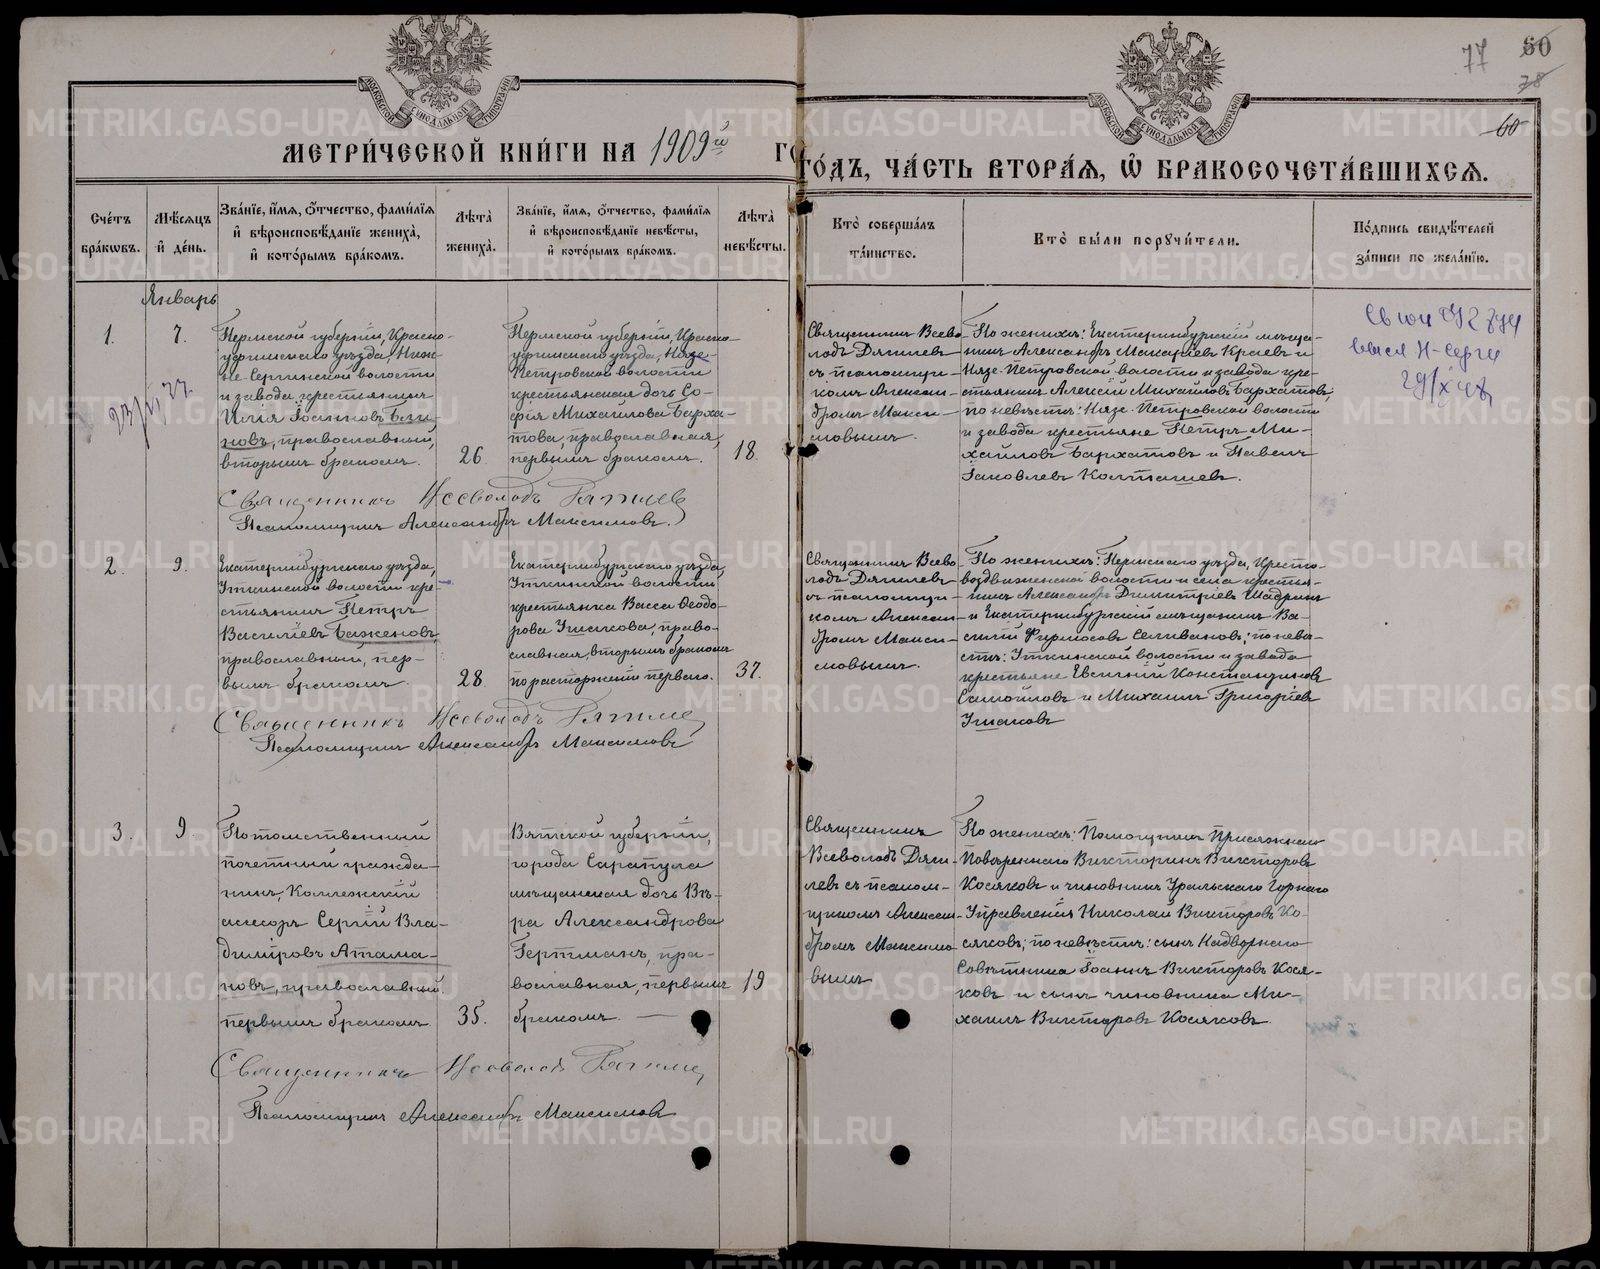 77
60
78
60
МОСКОВСКОЙ СѴНОДАЛЬНОЙ ТИПОГРАФІИ
МОСКОВСКОЙ СѴНОДАЛЬНОЙ ТИПОГРАФІИ
МЕТРИ́ЧЕСКОЙ КНИ́ГИ НА 1909й ГО
ГО́ДЪ, ЧА́СТЬ ВТОРА́Ѧ, Ѽ БРАКОСОЧЕТА́ВШИХСѦ.
Сче́тъ
бра́кѡвъ.
Мѣ́сяцъ
и҆ де́нь.
Зва́нїе, и҆́мѧ, ѻ҆́тчество, фами́лїѧ
и҆ вѣроисповѣ́данїе жениха̀,
и҆ кото́рымъ бра́комъ.
Лѣ́та
жениха̀.
Зва́нїе, и҆́мѧ, ѻ҆́тчество, фами́лїѧ
и҆ вѣроисповѣ́данїе невѣ́сты,
и҆ кото́рымъ бра́комъ.
Лѣ́та
невѣ́сты.
Кто̀ соверша́лъ
та́инство.
Кто̀ бы́ли порꙋчи́тели.
По́дпись свидѣ́телей
за́писи по жела́нїю.
Январь
1.
7.
Пермской губерніи, Красно-
уфимскаго уѣзда, Ниж-
не-Сергинской волости
и завода крестьянинъ
Илія Іоанновъ Бези-
новъ, православный,
вторымъ бракомъ.
26.
Пермской губерніи, Красно-
уфимскаго уѣзда, Нязе-
Петровской волости
крестьянская дочь Со-
фія Михаилова Барха-
това, православная,
первымъ бракомъ.
18.
Священникъ Всево-
лодъ Дягилевъ
съ псаломщи-
комъ Алексан-
дромъ Макси-
мовымъ.
По женихѣ: Екатеринбургскій мѣща-
нинъ Александръ Макаріевъ Краевъ и
Нязе-Петровской волости и завода кре-
стьянинъ Алексій Михаиловъ Бархатовъ;
по невѣстѣ: Нязе-Петровской волости
и завода крестьяне Петръ Ми-
хаиловъ Бархатовъ и Павелъ
Іаковлевъ Колташевъ.
Н-Серги
Священникъ Всеволодъ Дягилев
Псаломщикъ Александръ Максимовъ.
2.
9.
Екатеринбургскаго уѣзда,
Уткинской волости кре-
стьянинъ Петръ
Василіевъ Баженовъ,
православный, пер-
вымъ бракомъ.
28.
Екатеринбургскаго уѣзда,
Уткинской волости
крестьянка Васса Ѳеодо-
рова Ушакова, право-
славная, вторымъ бракомъ
по расторженіи перваго.
37.
Священникъ Всево-
лодъ Дягилевъ
съ псаломщи-
комъ Алексан-
дромъ Макси-
мовымъ.
По женихѣ: Пермскаго уѣзда, Кресто-
воздвиженской волости и села крестья-
нинъ Александръ Димитріевъ Шадринъ
и Екатеринбургскій мѣщанинъ Ва-
силій Фирмосовъ Селивановъ; по невѣ-
стѣ: Уткинской волости и завода
крестьяне Евгеній Константиновъ
Самойловъ и Михаилъ Григоріевъ
Ушаковъ
Священникъ Всеволодъ Дягилев
Псаломщикъ Александръ Максимовъ
3.
9.
Потомственный
почетный гражда-
нинъ, Коллежскій
асесоръ Сергій Вла-
диміровъ Атама-
новъ, православный,
первымъ бракомъ.
35.
Вятской губерніи,
города Сарапула
мѣщанская дочь Вѣ-
ра Александрова
Гертманъ, пра-
вославная, первымъ
бракомъ.
19
Священникъ
Всеволодъ Дяги-
левъ съ псалом-
щикомъ Алексан-
дромъ Максимо-
вымъ
По женихѣ: Помощникъ Присяжнаго
Повѣреннаго Викторинъ Викторовъ
Косяковъ и чиновникъ Уральскаго Горнаго
Управленія Николай Викторовъ Ко-
сяковъ; по невѣстѣ: сынъ Надворнаго
Совѣтника Іоаннъ Викторовъ Кося-
ковъ и сынъ чиновника Ми-
хаилъ Викторовъ Косяковъ.
Священникъ Всеволодъ Дягилев
Псаломщикъ Александръ Максимовъ
METRIKI.GASO-URAL.RU